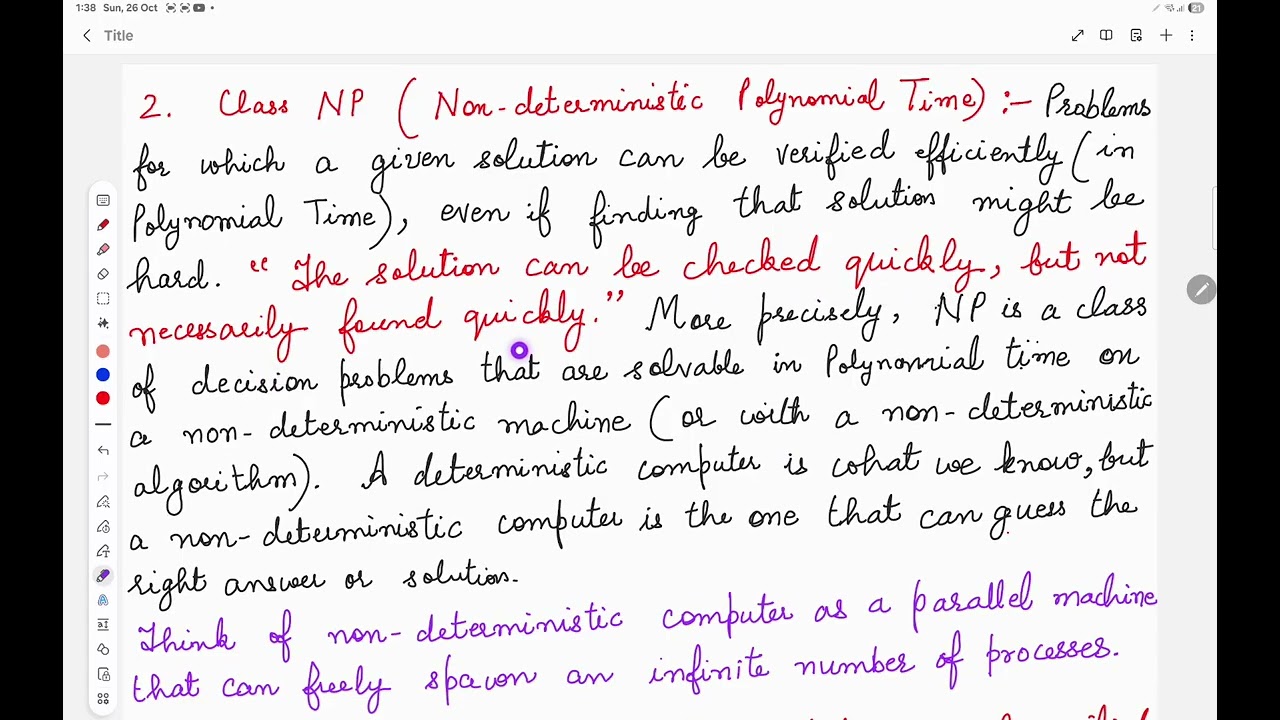 1:38 Sun, 26 Oct
21
Title
2. Class NP (Non-deterministic Polynomial Time) :- Problems
for which a given solution can be verified efficiently (in
Polynomial Time), even if finding that solution might be
hard. "The solution can be checked quickly, but not
necessarily found quickly." More precisely, NP is a class
of decision problems that are solvable in Polynomial time on
a non-deterministic machine (or with a non-deterministic
algorithm). A deterministic computer is what we know, but
a non-deterministic computer is the one that can guess the
right answer or solution.
Think of non-deterministic computer as a parallel machine
that can freely spawn an infinite number of processes.